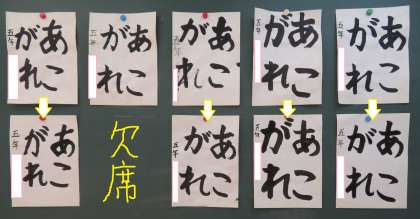 あこ
がれ
五年
あこ
がれ
五年
あこ
がれ
五年
あこ
がれ
五年
あこ
がれ
五年
あこ
がれ
五年
欠席
あこ
がれ
五年
あこ
がれ
五年
あこ
がれ
五年